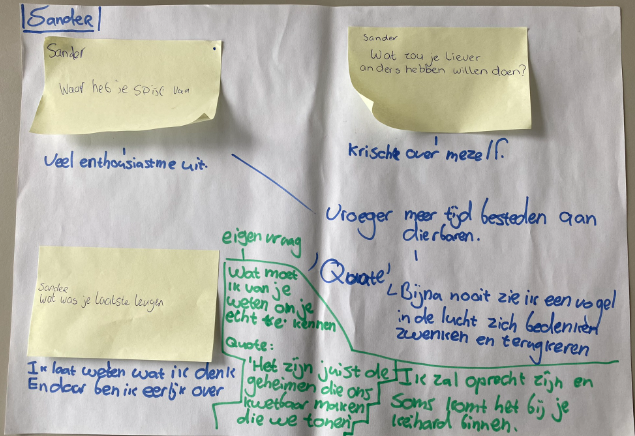 Sander
Sander
Waar heb je spijt van
Veel enthousiastme uit.
Sander
Wat zou je liever
anders hebben willen doen?
Krische over mezelf.
Vroeger meer tijd besteden aan
dierbaren.
'Quote'
Bijna nooit zie ik een vogel
in de lucht zich bedenken
zwenken en terugkeren
Sander
wat was je laatste leugen
Ik laat weten wat ik denk
En daar ben ik eerlijk over
eigen vraag
Wat moet
ik van je
weten om je
echt te kennen
Quote:
'Het zijn juist de
geheimen die ons
kwetbaar maken
die we tonen'
Ik zal oprecht zijn en
Soms komt het bij je
keihard binnen.